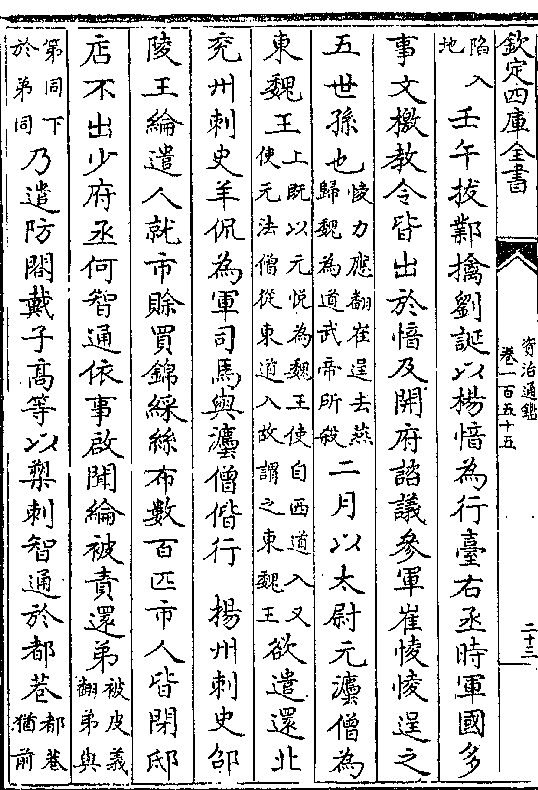 欽定四庫全書
資治通鑑
卷一百五十五
二十三
陷入
地
壬午拔鄴擒劉誕以楊愔為行臺右丞時軍國多
事文檄教令皆出於愔及開府諮議參軍崔㥄㥄逞之
五世孫也
㥄力應翻崔逞去燕
歸魏為道武帝所殺
二月以太尉元灋僧為
東魏王
上既以元悅為魏王使自西道入又
使元法僧從東道入故謂之東魏王
欲遣還北
兖州刺史羊侃為軍司馬與灋僧偕行 揚州刺史邵
陵王綸遣人就市賒買錦綵絲布數百匹市人皆閉邸
店不出少府丞何智通依事啟聞綸被責還弟
被皮義
翻弟與
第同下
於弟同
乃遣防閤戴子高等以槊刺智通於都巷
都巷
猶前